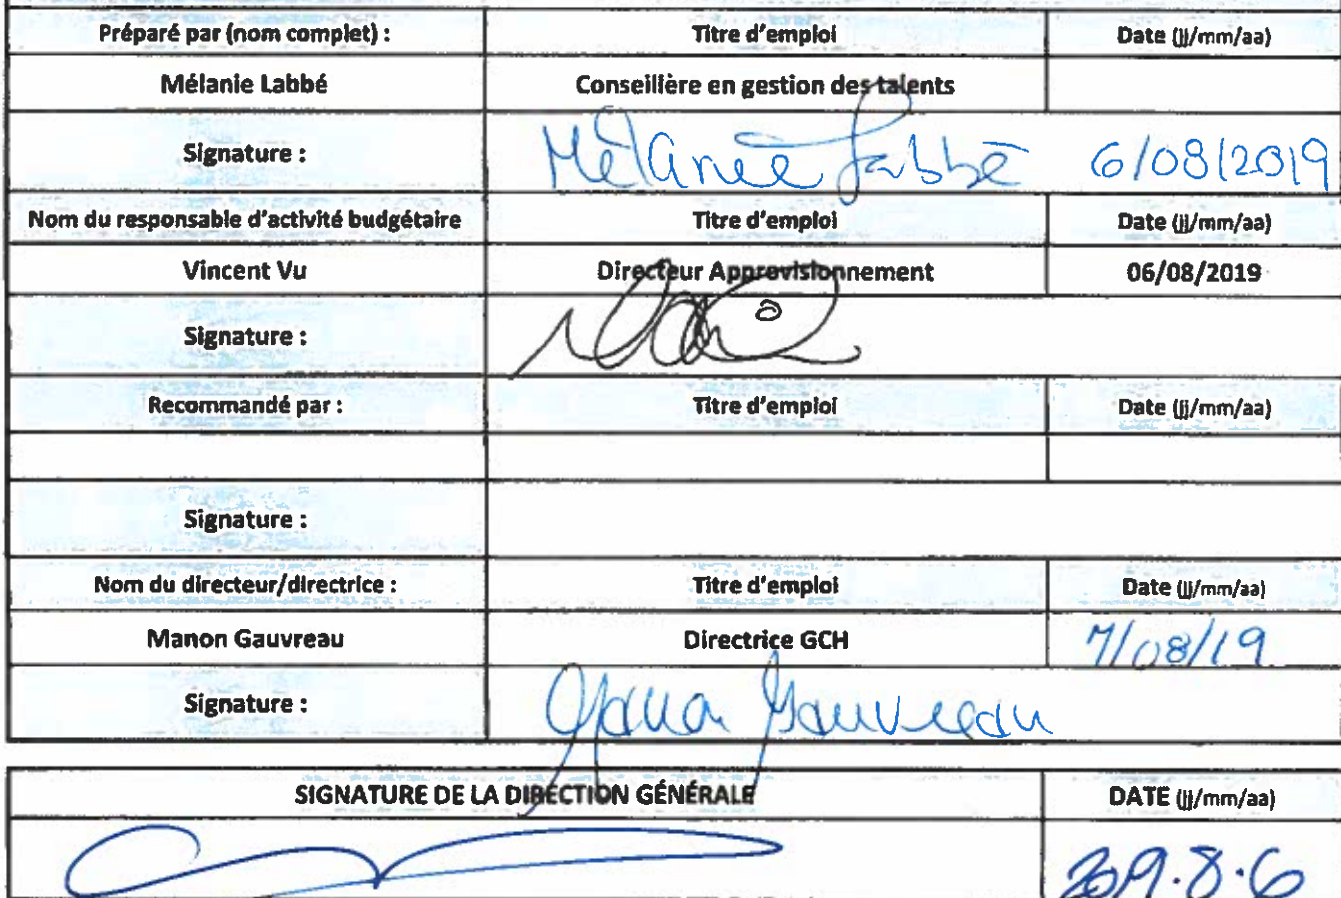 Préparé par (nom complet) : Titre d'emploi Date (jj/mm/aa)
Mélanie Labbé Conseillère en gestion des talents
Signature : Mélanie Labbé 6/08/2019
Nom du responsable d'activité budgétaire Titre d'emploi Date (jj/mm/aa)
Vincent Vu Directeur Approvisionnement 06/08/2019
Signature :
Recommandé par : Titre d'emploi Date (jj/mm/aa)
Signature :
Nom du directeur/directrice : Titre d'emploi Date (jj/mm/aa)
Manon Gauvreau Directrice GCH 7/08/19
Signature : Manon Gauvreau
SIGNATURE DE LA DIRECTION GÉNÉRALE DATE (jj/mm/aa)
2019.8.6